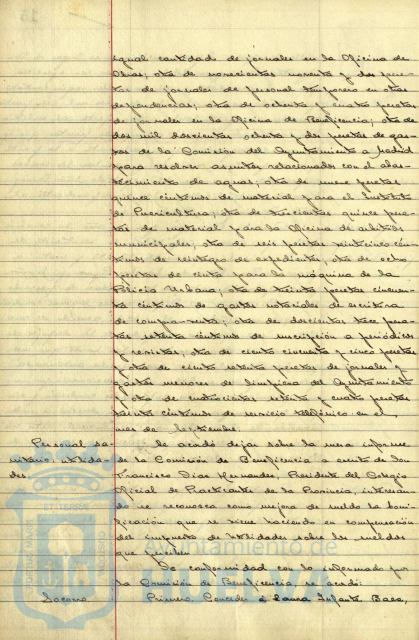 igual cantidad de jornales en la Oficina de
Obras; otra de novecientas noventa y dos pese-
tas de jornales de personal temporero en otras
dependencias; otra de ochenta y cuatro pesetas
de jornales en la Oficina de Beneficencia; otra de
dos mil doscientas ochenta y dos pesetas de gas-
tos de la Comisión del Ayuntamiento a Madrid
para resolver asuntos relacionados con el abas-
tecimiento de aguas; otra de nueve pesetas
quince céntimos de material para el Instituto
de Puericultura; otra de trescientas quince pese-
tas de material para la Oficina de arbitrios
municipales; otra de seis pesetas veinticinco cén-
timos de reintegro de expedientes; otra de ocho
pesetas de cinta para la máquina de la
Policía Urbana; otra de treinta pesetas cincuen-
ta céntimos de gastos notariales de escritura
de compra-venta; otra de doscientas trece pese-
tas setenta céntimos de suscripción a periódicos
y revistas; otra de ciento cincuenta y cinco pesetas
y otra de ciento setenta pesetas de jornales y
gastos menores de limpieza del Ayuntamiento
y otra de cuatrocientas setenta y cuatro pesetas
treinta céntimos de servicio telefónico en el
mes de Septiembre.
Personal sa-
nitario; utilida-
des.
Se acordó dejar sobre la mesa informe
de la Comisión de Beneficencia a escrito de don
Francisco Díaz Hernández, Presidente del Colegio
Oficial de Practicantes de la Provincia, interesan-
do se reconozca como mejora de sueldo la boni-
ficación que se viene haciendo en compensación
del impuesto de Utilidades sobre los sueldos
que perciben.
De conformidad con lo informado por
la Comisión de Beneficencia se acordó:
Socorro
Primero. Conceder a Laura Infante Baea,
ET TERRA
Ayuntamiento de